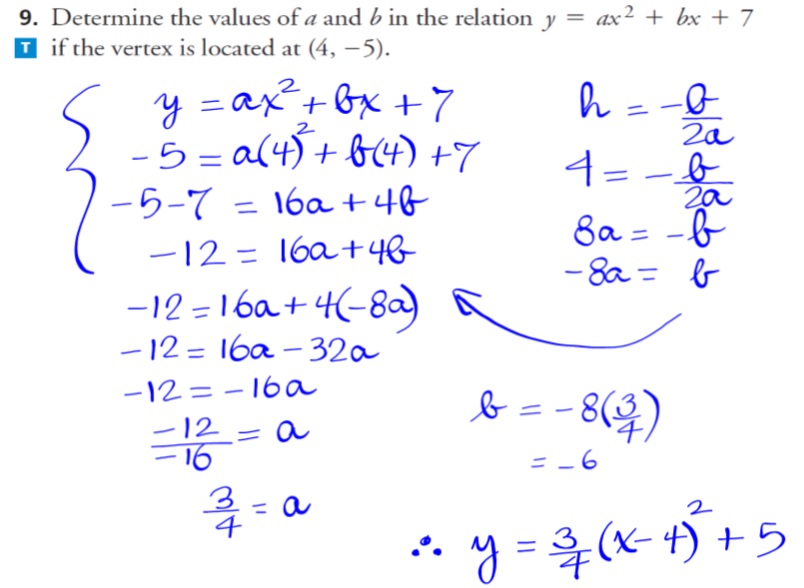 9. Determine the values of a and b in the relation y = ax² + bx + 7
T if the vertex is located at (4, −5).
y = ax² + bx + 7
-5 = a(4)² + b(4) + 7
-5-7 = 16a + 4b
-12 = 16a + 4b
-12 = 16a + 4(-8a)
-12 = 16a - 32a
-12 = -16a
-12/-16 = a
3/4 = a
h = -b/2a
4 = -b/2a
8a = -b
-8a = b
b = -8(3/4)
= -6
∴ y = 3/4(x-4)² + 5